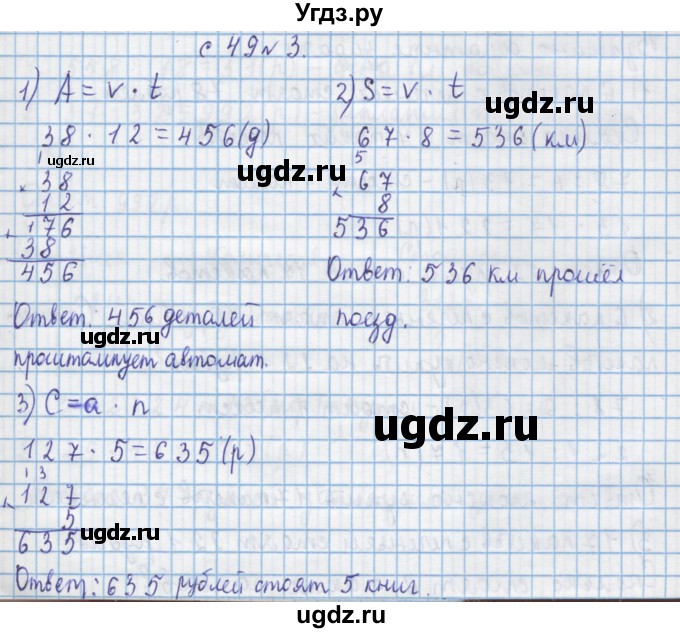 Угдз.ру
с 49 № 3.
1) A = v · t
38 · 12 = 456 (д)
1
× 38
12
+ 176
38
456
Ответ: 456 деталей
проштампует автомат.
2) S = v · t
67 · 8 = 536 (км)
5
× 67
8
536
Ответ: 536 км прошёл
поезд.
3) C = a · n
127 · 5 = 635 (р)
1 3
× 127
5
635
Ответ: 635 рублей стоят 5 книг.
ugdz.ru
ugdz.ru
ugdz.ru
ugdz.ru
ugdz.ru
ugdz.ru
ugdz.ru
ugdz.ru